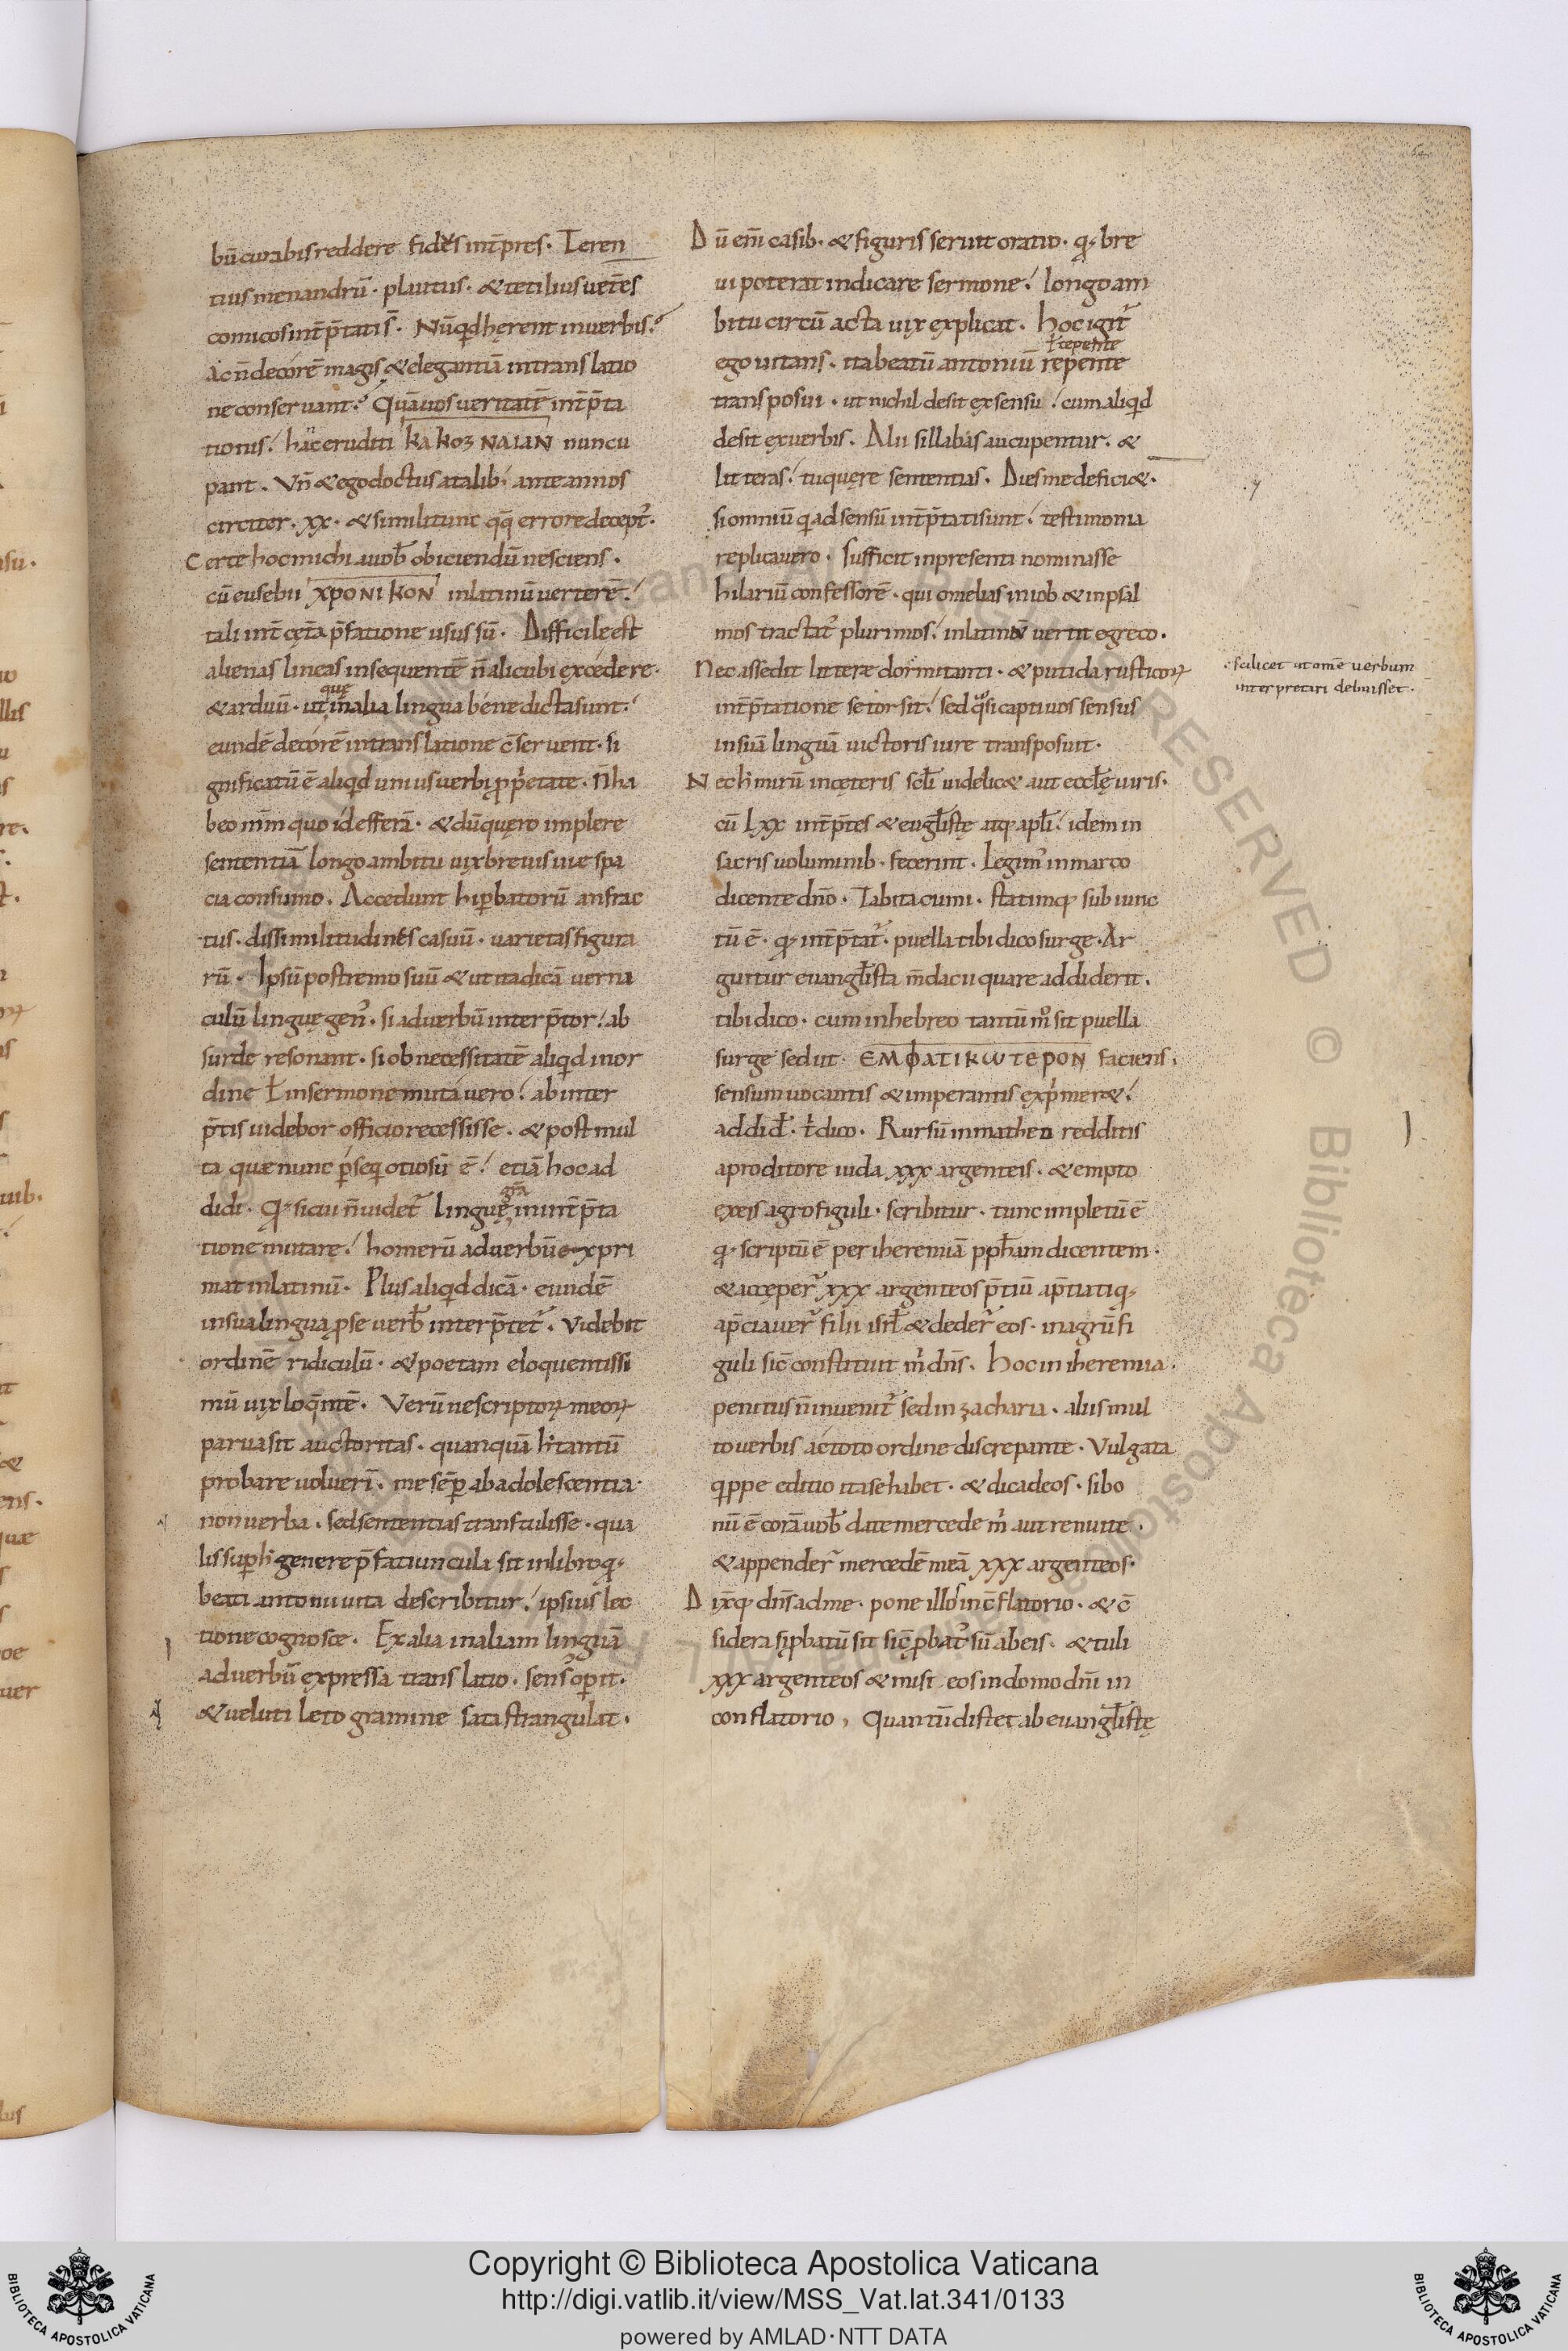 bū curabis reddere fidus int̄pres. Teren
tius menandrū. plautus. &cetilius uet̄es
comicos int̄p̄tati s̄. Nūqd hęrent in uerbis?
Ac n̄ decorē magis &elegantiā in trans latio
ne conseruant? Quā uos ueritatē int̄p̄ta
tionis. hāc eruditi KAKOZNAIAN nuncu
pant. Vn̄ &ego doctus a talib; ante annos
circiter. xx. &simili tunc qq; errore decept᷒.
Certe hoc michi a uob̄ obiciendū nesciens.
cū eusebii XPONIKON in latinū verterē.
tali int̄ cęt̄a p̄fatione usus sū. Difficile est
alienas lineas insequentē n̄ alicubi excedere.
&arduū. ut quę in alia lingua bene dicta sunt.
eundē decorē in trans latione c̄seruent. si
gnificatū ē aliqd unius uerbi pprietate. n̄ ha
beo m̄m quo id efferā. &dū quęro implere
sententiā longo ambitu uix breuis uie spa
cia consumo. Accedunt hiꝑbatorū anfrac
tus. dissimilitudines casuū. uarietas figura
rū. Ipsū postremo suū &ut ita dicā uerna
culū linguę gen᷒. si ad uerbū inter p̄tor. ab
surde resonant. si ob necessitatē aliqd in or
dine ł in sermone mutauero. ab inter
p̄tis uidebor officio recessisse. &post mul
ta quæ nunc ꝑseq otiosū ē. etiā hoc ad
didi. Qđ si cui n̄ uidet᷒ linguę grā in int̄p̄ta
tione mutare. homerū ad uerbū expri
mat in latinū. Plus aliqd dicā. eundē
in sua lingua ꝓse uerb̄ inter p̄tet᷒. Videbit
ordinē ridiculū. &poetam eloquentissi
mū uix loq̄ntē. Verū ne scriptoꝝ meoꝝ
parua sit auctoritas. quanquā h̄ tantū
probare uoluerī. me sēꝑ ab adolescentia.
non uerba. sed sententias transtulisse. qua
lis suꝑ h̄ genere p̄fatiuncula sit in libro q;
beati antonii uita describitur. ipsius lec
tione cognosce. Ex alia in aliam linguā
ad uerbū expressa trans latio. sens᷒ oꝑit.
&ueluti leto gramine sata strangulat.
Dū em̄ casib. &figuris seruit oratio. q; bre
ui poterat indicare sermone. longo am
bitu circū acta uix explicat. hoc igit᷒
ł repente
ego uitans. ita beatū antoniū repente
transposui. ut nichil desit ex sensu. cum aliqd
desit ex uerbis. Alii sillabas aucupentur. &
litteras. tu quęre sententias. Dies me defici&.
si omniū q ad sensū int̄p̄tati sunt. testimonia
replicauero. Sufficit in presenti nominasse
hilariū confessorē. qui omelias in iob &in psal
mos tractat᷒ plurimos. in latinū uertit e greco.
Nec assedit litteræ dormitanti. &putida rusticoꝝ
int̄p̄tatione se torsit. sed q̄si captiuos sensus
in suā linguā uictoris iure transposuit.
Nec h̄ mirū in cęteris scłi uidelic& aut ecclę uiris.
cū Lxx int̄p̄tes &eugłistę atq; apłi. idem in
sacris uoluminib. fecerint. Legim᷒ in marco
dicente dn̄o. Tabita cumi. statimq; sub iunc
tū ē. q; int̄p̄tat᷒. puella tibi dico surge. Ar
guitur euangłista m̄dacii quare addiderit.
tibi dico. cum in hebreo tantūm᷒ sit puella
surge sed ut ЄMΦATIKωTEPON faciens.
sensum uocantis &imperantis exp̄mer&.
addid̄. t̄ dico. Rursū in matheo redditis
a proditore iuda xxx argenteis. &empto
ex eis agro figuli. scribitur. tunc impletū ē
q; scriptū ē per iheremiā pp̄ham dicentem.
&accęper᷒ xxx argenteos p̄tiū ap̄tiati q;
ap̄ciauer᷒ filii isrł &deder᷒ eos. in agrū fi
guli sic̄ constituit m̄ dn̄s. hoc in iheremia.
penitus n̄ inuenit᷒ sed in zacharia. aliis mul
to uerbis ac toto ordine discrepante. Vulgata
qppe editio ita se habet. &dica ad eos. si bo
nū ē corā uob̄ date mercedē m̄ aut renuite.
&appender᷒ mercedē meā xxx argenteos.
Dix̄q; dn̄s ad me. pone illos in c̄flatorio. &c̄
sidera si ꝓbatū sit sic̄ ꝓbat᷒ sū ab eis. &tuli
xxx argenteos &misi eos in domo dn̄i in
conflatorio. Quantū distet ab euangłistę
scilicet ut om̄e uerbum
interpretari debuisset.
Copyright © Biblioteca Apostolica Vaticana
http://digi.vatlib.it/view/MSS_Vat.lat.341/0133
powered by AMLAD·NTT DATA